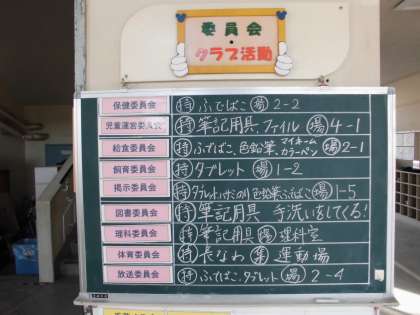 委員会
・
クラブ活動
保健委員会 持 ふでばこ 場 2-2
児童運営委員会 持 筆記用具、ファイル 場 4-1
給食委員会 持 ふでばこ、色鉛筆、マイネーム カラーペン 場 2-1
飼育委員会 持 タブレット 場 1-2
掲示委員会 持 タブレット、ハサミ、のり、色鉛筆、ふでばこ 場 1-5
図書委員会 持 筆記用具 手洗いをしてくる!
理科委員会 持 筆記用具 場 理科室
体育委員会 持 長なわ 集 運動場
放送委員会 持 ふでばこ、タブレット 場 2-4